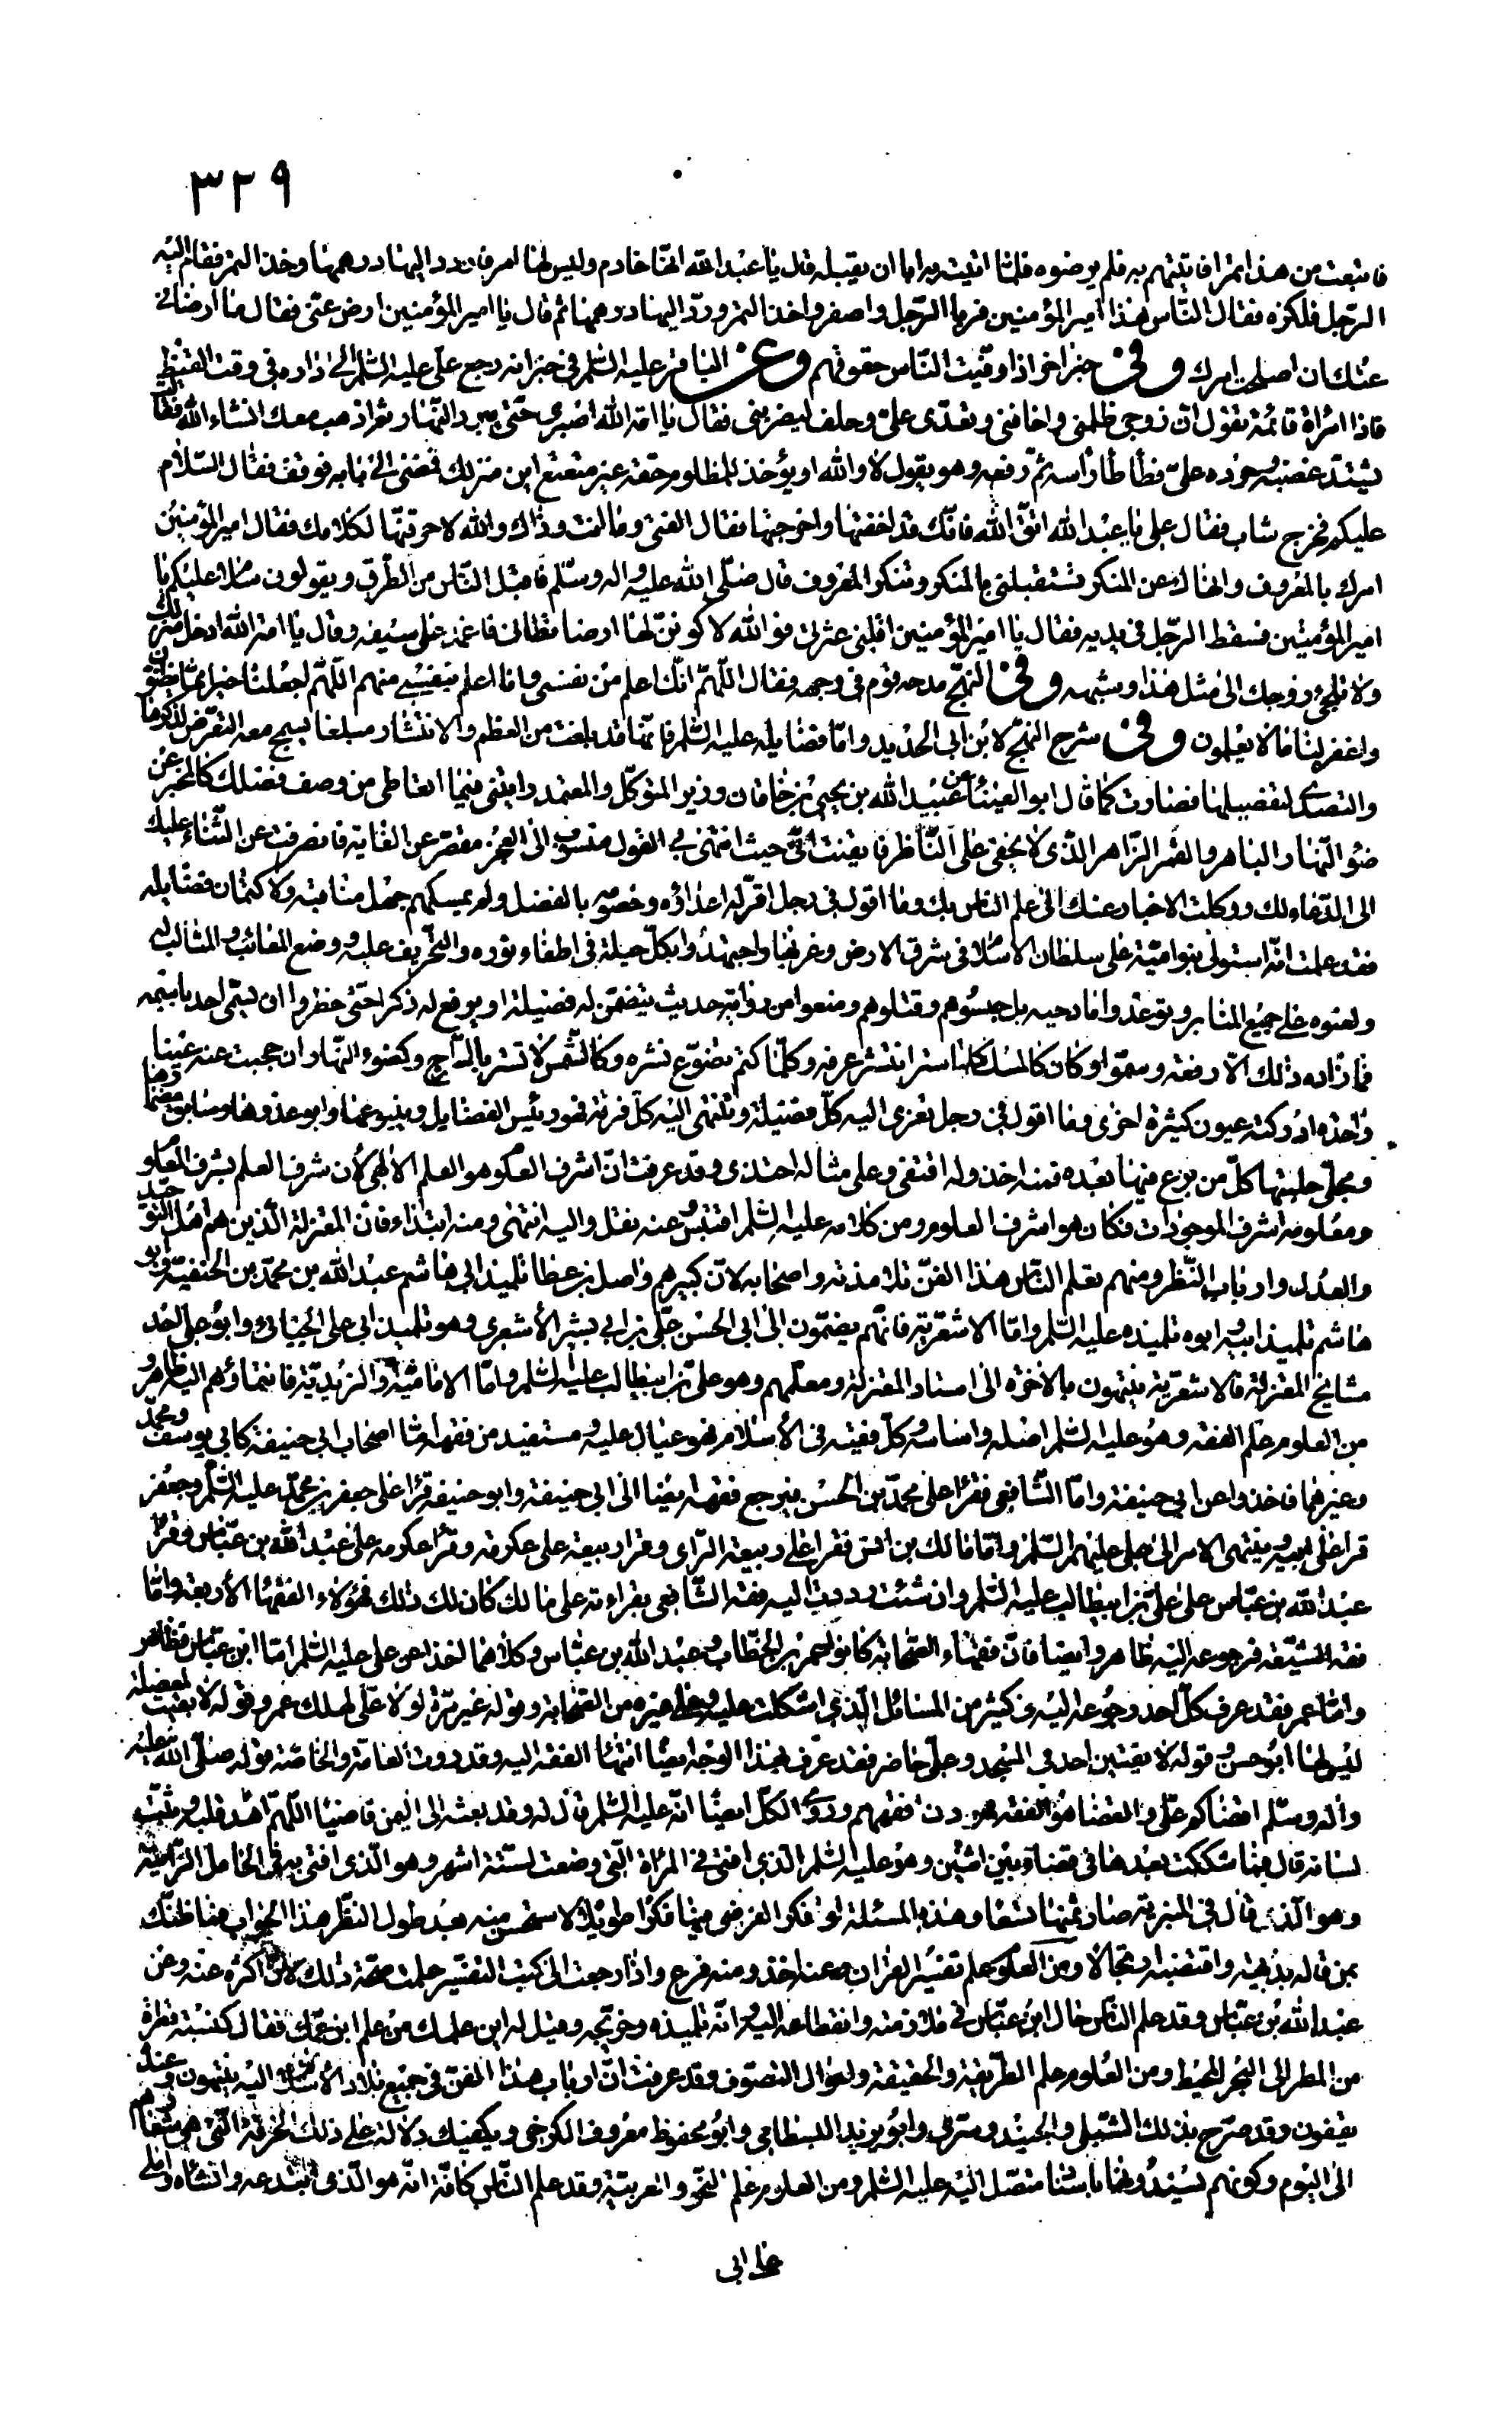 ٣٢٩
فابتعت من هذا تمرا فاتيتهم به فلم يرضوه فلمّا اتيته به ابا ان يقبله قال يا عبد الله انّها خادم وليس لها امر فاردد اليها درهمها وخذ التمر فقام اليه
الرّجل فلكزه فقال النّاس هذا امير المؤمنين فربا الرّجل واصفر واخذ التمر وردّ اليها درهمها ثم قال يا امير المؤمنين ارض عنّى فقال ما ارضانى
عنك ان اصلحت امرك وفى خبر اخر اذا وفيت النّاس حقوقهم وعن الباقر عليه السّلم فى خبر انه رجع علىّ عليه السّلم الى داره فى وقت القيظ
فاذا امراة قائمة تقول انّ زوجى ظلمنى واخافنى وتعدّى علىّ وحلف ليضربنى فقال يا امة الله اصبرى حتى يبرد النّهار ثم اذهب معك انشاء الله فقالت
يشتدّ غضبه وحرده علىّ فطأطأ راسه ثمّ رفعه وهو يقول لا والله او يؤخذ للمظلوم حقّه غير متعتع اين منزلك فمضى الى بابه فوقف فقال السّلام
عليكم فخرج شاب فقال على يا عبد الله اتّق الله فانّك قد اخفتها واخرجتها فقال الفتى وما انت وذاك والله لاحرقنّها لكلامك فقال امير المؤمنين
امرك بالمعروف وانهاك عن المنكر تستقبلنى بالمنكر وتنكر المعروف قال صلّى الله عليه واله وسلّم فاقبل النّاس من الطّرق ويقولون سلام عليكم يا
امير المؤمنين فسقط الرّجل فى يديه فقال يا امير المؤمنين اقلنى عثرتى فو الله لاكوننّ لها ارضا تطانى فاغمد على سيفه وقال يا امة الله ادخلى منزلك
ولا تلجئى زوجك الى مثل هذا وشبهه وفى النهج مدحه قوم فى وجهه فقال اللّهمّ انّك اعلم من نفسى وانا اعلم بنفسى منهم اللّهم اجعلنا خيرا ممّا يظنّون
واغفر لنا ما لا يعلمون وفى شرح النهج لابن ابى الحديد وامّا فضايله عليه السّلم فانّها قد بلغت من العظم والانتشار مبلغا يسمج معه التعرّض لذكرها
والتصدّى لتفصيلها فصارت كما قال ابو العيناء عن عبيد الله بن يحيى بن خاقان وزير المتوكّل والمعتمد وايتنى فيما اتعاطى من وصف فضلك كالمخبر عن
ضوء النّهار الباهر والقمر الزّاهر الّذى لا يخفى على النّاظر فايقنت انّى حيث انتهى بى القول منسوب الى العجز مقصّر عن الغاية فانصرفت عن الثّناء عليك
الى الدّعاء لك ووكلت الاخبار عنك الى علم النّاس بك وما اقول فى رجل اقرّ له اعداؤه وخصومه بالفضل ولم يمكنهم جهل مناقبه ولا كتمان فضايله
فقد علمت انّه استولى بنو اميّة على سلطان الاسلام فى شرق الارض وغربها واجتهدوا بكلّ حيلة فى اطفاء نوره والتّحريف عليه ووضع المعائب والمثالب له
ولعنوه على جميع المنابر وتوعّدوا مادحيه بل حبسوهم وقتلوهم ومنعوا من رواية حديث يتضمّن له فضيلة او يرفع له ذكرا حتى حظروا ان يسمّى احد باسمه
فما زاده ذلك الّا رفعة وسموّا وكان كالمسك كلما ستر انتشر عرفه وكلّما كتم تضوّع نشره وكالشّمس لا تستر بالرّاح وكضوء النّهار ان حجبت عنه عينا
واحدة ادركته عيون كثيرة اخرى وما اقول فى رجل تعزى اليه كلّ فضيلة وتنتهى اليه كلّ فرقة فهو رئيس الفضايل وينبوعها وابو عذرها وسابق مضمارها
ومجلّى حلبتها كلّ من بزع فيها بعده فمنه اخذ وله اقتفى وعلى مثاله احتذى وقد عرفت انّ اشرف العلوم هو العلم الالهى لأن شرف العلم بشرف المعلوم
ومعلومه اشرف الموجودات فكان هو اشرف العلوم ومن كلامه عليه السّلم اقتبس وعنه نقل واليه انتهى ومنه ابتداء فانّ المعتزلة الّذين هم اهل التّوحيد
والعدل وارباب النّظر ومنهم تعلم النّاس هذا الفنّ تلامذته واصحابه لانّ كبيرهم واصل بن عطا تلميذ ابى هاشم عبد الله بن محمّد بن الحنفيّة وابو
هاشم تلميذ ابيه وابوه تلميذه عليه السّلم وامّا الاشعّرية فانّهم ينتمون الى ابى الحسن علىّ بن ابى بشر الأشعرى وهو تلميذ ابى على الجبائى وابو على احد
مشايخ المعتزلة فالاشعّرية ينتهون بالاخرة الى استاد المعتزلة ومعلّمهم وهو علىّ بن ابيطالب عليه السّلم وامّا الاماميّة والزّيديّة فانتماؤهم اليه ظاهر و
من العلوم علم الفقه وهو عليه السّلم اصله واساسه وكلّ فقيه فى الأسلام فهو عيال عليه ومستفيد من فقهه امّا اصحاب ابى حنيفة كابى يوسف ومحمّد
وغيرهما فاخذوا عن ابى حنيفة وامّا الشّافعى فقرأ على محمّد بن الحسن فيرجع فقهه ايضا الى ابى حنيفة وابو حنيفة قرأ على جعفر بن محمّد عليه السّلم وجعفر
قرا على ابيه وينتهى الامر الى على عليهم السّلم وامّا مالك بن انس فقرا على ربيعة الرّاى وقرا ربيعة على عكرمة وقرأ عكرمه على عبد الله بن عبّاس وقرأ
عبد الله بن عبّاس على علىّ بن ابيطالب عليه السّلم وان شئت رددت اليه فقه الشّافعى بقراءته على مالك كان لك ذلك فهؤلاء الفقهاء الأربعة وامّا
فقه الشّيعة فرجوعه اليه ظاهر وايضا فانّ فقهاء الصّحابة كانوا عمر بن الخطّاب وعبد الله بن عبّاس وكلاهما اخذا عن على عليه السّلم امّا ابن عبّاس فظاهر
وامّا عمر فقد عرف كلّ احد رجوعه اليه فى كثير من المسائل الّذى اشكلت عليه وعلى غيره من الصّحابة وقوله غير مرّة لولا علىّ لهلك عمر وقوله لا بقيت لمعضلة
ليس لها ابو حسن وقوله لا يفتين احد فى المسجد وعلىّ حاضر فقد عرّف بهذا الوجه ايضا انتهاء الفقه اليه وقد روت العامّة والخاصّة قوله صلّى الله عليه
واله وسلّم اقضاكم علىّ والقضا هو الفقه فهو اذن افقههم وروى الكلّ ايضا انّه عليه السّلم قال له وقد بعثه الى اليمن قاضيا اللّهمّ اهد قلبه وثبّت
لسانه قال فما شككت بعدها فى قضاء بين اثنين وهو عليه السّلم الّذى افتى فى المراة الّتى وضعت لستّة اشهر وهو الّذى افتى به فى الحامل الزّانية
وهو الّذى قال فى المنبريّة صار ثمنها تسعا وهذه المسئلة لو فكر الفرضى فيها فكرا طويلا لاستحسن منه بعد طول النظّر هذا الجواب فما ظنّك
بمن قاله بديهة واقتضبه ارتجالا ومن العلوم علم تفسير القران وعنه اخذ ومنه فرع واذا رجعت الى كتب التفسير علمت صحّة ذلك لانّ اكثره عنه وعن
عبد الله بن عبّاس وقد علم النّاس حال ابن عبّاس فى ملازمته وانقطاعه اليه وانّه تلميذه وخرّيجه وقيل له اين علمك من علم ابن عمّك فقال كنسبة قطرة
من المطر الى البحر المحيط ومن العلوم علم الطّريقة والحقيقة واحوال التصوّف وقد عرفت انّ ارباب هذا الفنّ فى جميع بلاد الأسلام اليه ينتهون وعنده
يقفون وقد صرّح بذلك الشّبلى والجنيد وسرّى وابو يزيد البسطامى وابو محفوظ معروف الكرخى ويكفيك دلالة على ذلك الخرقة الّتى هى شعارهم
الى اليوم وكونهم يسندونها باسناد متصّل اليه عليه السّلم ومن العلوم علم النّحو والعربيّة وقد علم النّاس كافّة انّه هو الّذى ابتدعه وانشاه واملى
على ابى